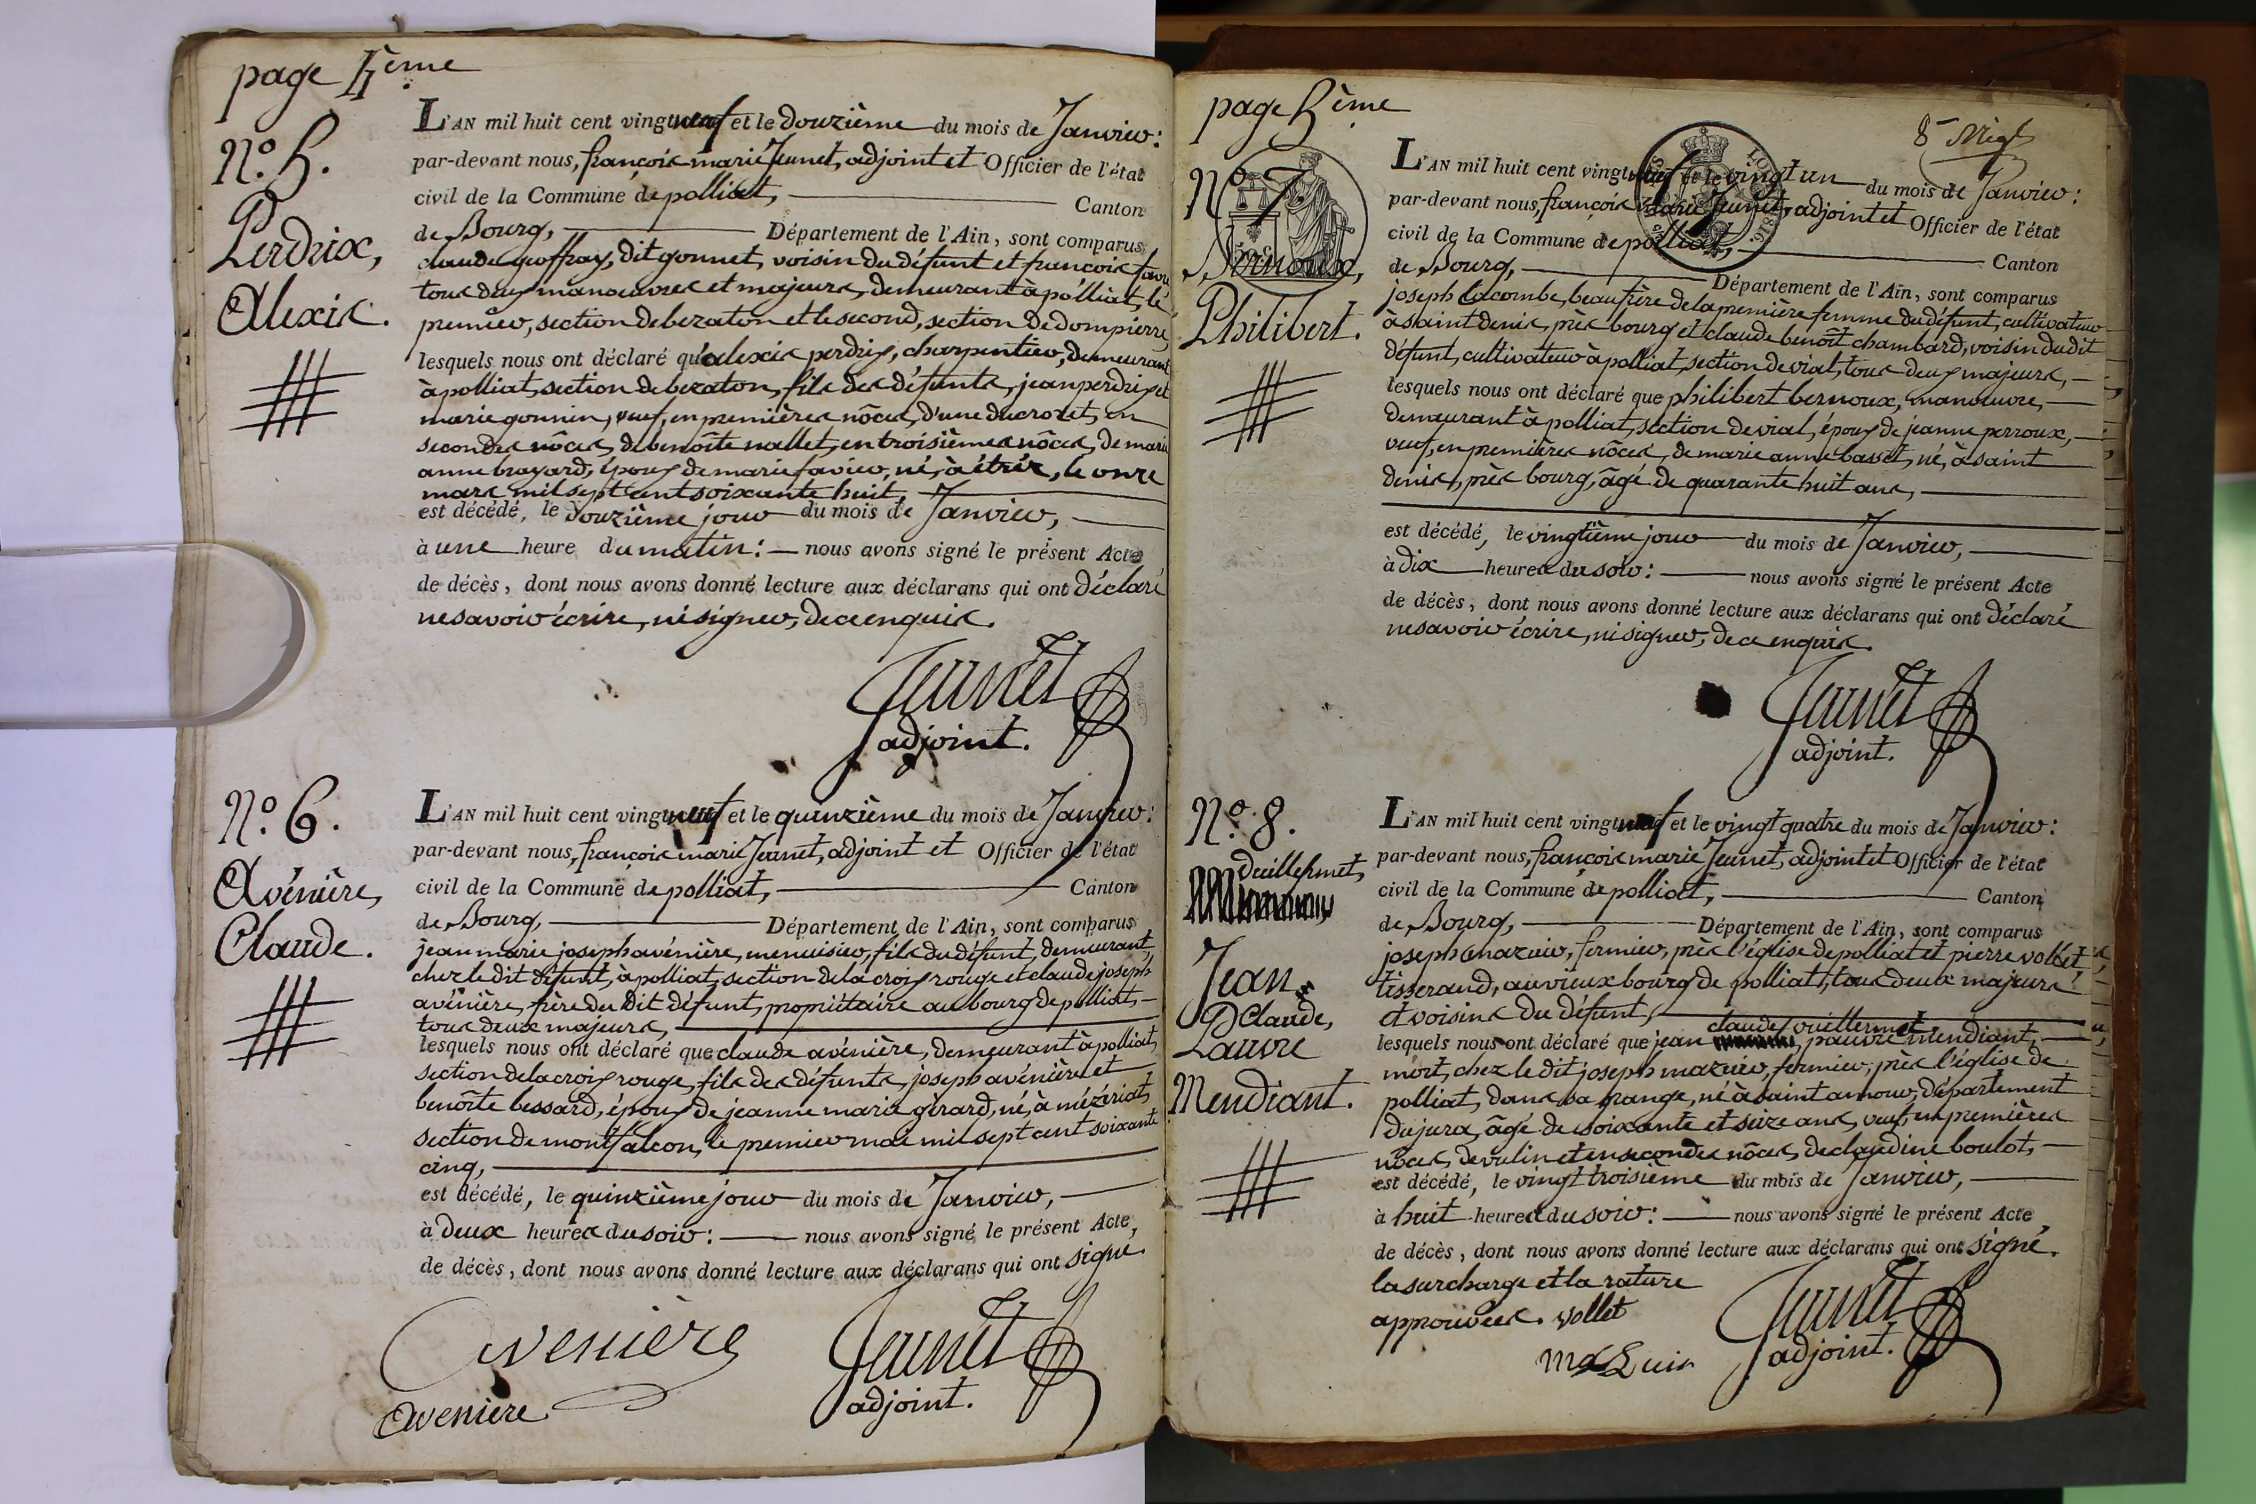 page 4ème
N.o 5.
Perdrix,
Alexis.
L'AN mil huit cent vingt neuf et le douzième du mois de Janvier:
par-devant nous, françois marie Jeunet, adjoint et Officier de l'état
civil de la Commune de polliat, Canton
de Bourg, Département de l'Ain, sont comparus
claude geoffray, dit gonnet, voisin du défunt et françois favre
tous deux manoeuvres et majeurs, demeurant à polliat, le
premier, section de bezaton et le second, section de dompierre,
lesquels nous ont déclaré qu'alexis perdrix, charpentier, demeurant
à polliat, section de bezaton, fils des défunts, jean perdrix et
marie gonnin, veuf, en premières nôces, d'une ducrozet, en
secondes nôces, de benoîte nallet, en troisièmes nôces, de marie
anne broyard, époux de marie favier, né, à étréz, le onze
mars mil sept cent soixante huit,
est décédé, le douzième jour du mois de Janvier,
à une heure du matin: nous avons signé le présent Acte
de décès, dont nous avons donné lecture aux déclarans qui ont déclaré
ne savoir écrire, ni signer, de ce enquis.
Jeunet
adjoint.
N.o 6.
Avénière,
Claude.
L'AN mil huit cent vingt neuf et le quinzième du mois de Janvier:
par-devant nous, françois marie Jeunet, adjoint et Officier de l'état
civil de la Commune de polliat, Canton
de Bourg, Département de l'Ain, sont comparus
jean marie joseph avénière, menuisier, fils du défunt, demeurant,
chez le dit défunt, à polliat, section de la croix rouge et claude joseph
avénière, frère du dit défunt, propriétaire au bourg de polliat,
tous deux majeurs,
lesquels nous ont déclaré que claude avénière, demeurant à polliat,
section de la croix rouge, fils des défunts, joseph avénière et
benoîte bessard, époux de jeanne marie girard, né, à mézériat,
section de montfalcon, le premier mai mil sept cent soixante
cinq,
est décédé, le quinzième jour du mois de Janvier,
à deux heures du soir: nous avons signé le présent Acte,
de décès, dont nous avons donné lecture aux déclarans qui ont signé.
Avenière
Avenière
Jeunet
adjoint.
page 5ème
N.o 7
Bernoux,
Philibert.
L'AN mil huit cent vingt neuf et le vingt un du mois de Janvier:
par-devant nous, françois marie Jeunet, adjoint et Officier de l'état
civil de la Commune de polliat, Canton
de Bourg, Département de l'Ain, sont comparus
joseph lacombe, beaufrère de la première femme du défunt, cultivateur
à saint denis, près bourg et claude benoît chambard, voisin du dit
défunt, cultivateur à polliat, section de vial, tous deux majeurs,
lesquels nous ont déclaré que philibert bernoux, manoeuvre,
demeurant à polliat, section de vial, époux de jeanne perroux,
veuf, en premières nôces, de marie anne basset, né, à saint
denis, près bourg, âgé de quarante huit ans,
est décédé, le vingtième jour du mois de Janvier,
à dix heures du soir: nous avons signé le présent Acte
de décès, dont nous avons donné lecture aux déclarans qui ont déclaré
ne savoir écrire, ni signer, de ce enquis.
Jeunet
adjoint.
N.o 8.
vuillermet,
Jean
Claude,
Pauvre
Mendiant.
L'AN mil huit cent vingt neuf et le vingt quatre du mois de Janvier:
par-devant nous, françois marie Jeunet, adjoint et Officier de l'état
civil de la Commune de polliat, Canton
de Bourg, Département de l'Ain, sont comparus
joseph mazuir, fermier, près l'église de polliat et pierre vollet,
tisserand, au vieux bourg de polliat, tous deux majeurs
et voisins du défunt,
lesquels nous ont déclaré que jean claude vuillermet, pauvre mendiant,
mort, chez le dit joseph mazuir, fermier, près l'église de
polliat, dans sa grange, né à saint amour, département
du jura, âgé de soixante et seize ans, veuf, en premières
nôces, de vulin et en secondes nôces, de claudine boulot,
est décédé, le vingt troisième du mois de Janvier,
à huit heures du soir: nous avons signé le présent Acte,
de décès, dont nous avons donné lecture aux déclarans qui ont signé.
la surcharge et la rature
approuvées. vollet
Jeunet
adjoint.